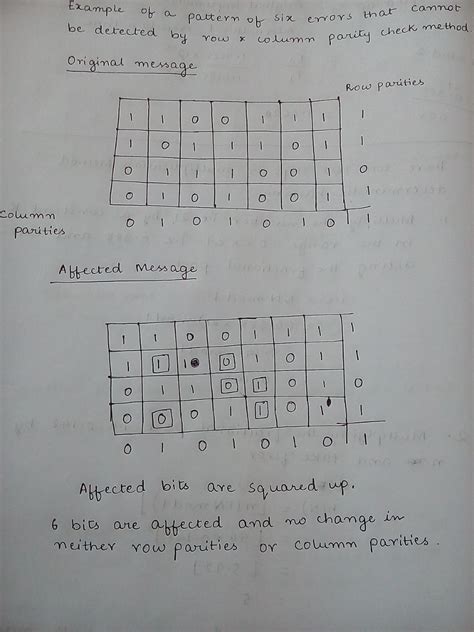 Example of a pattern of six errors that cannot
be detected by row x column parity check method
Original message
Row parities
1 1 0 0 1 1 1 1
1 0 1 1 1 0 1 1
0 1 1 1 0 0 1 0
0 1 0 1 0 0 1 1
Column parities
0 1 0 1 0 1 0 1
Affected Message
1 1 0 0 1 1 1 1
1 1 1 0 1 0 1 1
0 1 1 0 1 0 1 0
0 0 0 1 1 0 1 1
0 1 0 1 0 1 0 1
Affected bits are squared up.
6 bits are affected and no change in
neither row parities or column parities.